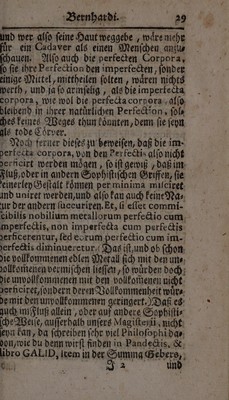 Bernhardi. 29
und wer also seine Haut weggebe, wäre mehr
für ein Cadaver als einen Menschen anzu-
schauen. Also auch die perfecten Corpora,
so sie ihre Perfection den imperfecten, sonder
einige Mittel, mittheilen solten, wären nichts
werth, und ja so armselig, als die imperfecta
corpora, wie wol die perfecta corpora, also
bleibend in ihrer natürlichen Perfection, sol-
ches keines Weges thun könnten, denn sie seyn
als tode Cörver.
Noch ferner dieses zu beweisen, daß die im-
perfecta corpora, von den Perfectis also nicht
perficirt werden mögen, so ist gewiß, daß im
Fluß, oder in andern Sophistischen Griffen, sie
keinerley Gestalt können per minima misciret
und uniret werden, und also kan auch keine Na-
tur der andern succurriren. Et, si esset commi-
scibilis nobilium metallorum perfectio cum
imperfectis, non imperfecta cum perfectis
perficerentur, sed e, rum perfectio cum im-
perfectis diminueretur. Das ist, und ob schon
die vollkommenen edlen Metall sich mit den un-
vollkomenen vermischen liessen, so würden doch
die unvollkommenen mit den vollkomenen nicht
perficiret, sondern deren Vollkommenheit wür-
de mit den unvollkommenen geringert. Daß es
auch im Fluß allein, oder auf andere Sophisti-
sche Weise, ausserhalb unsers Magisterii, nicht
seyn kan, da schreiben sehr viel Philosophi da-
von, wie du denn wirst finden in Pandectis, &
libro GALID, item in der Summa Gebers,
J 2 und